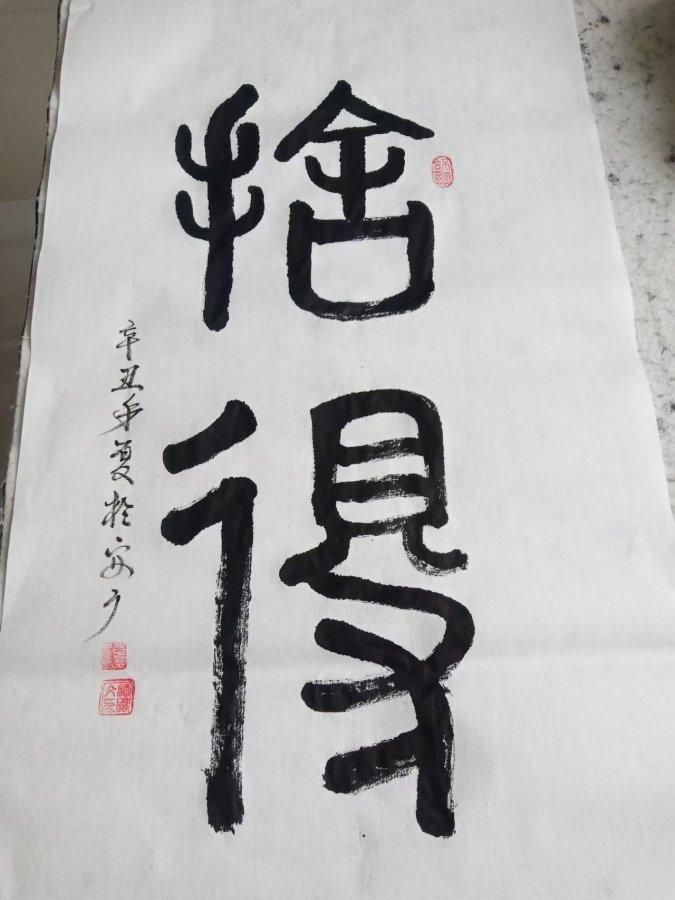 捨得
辛丑年夏於安广